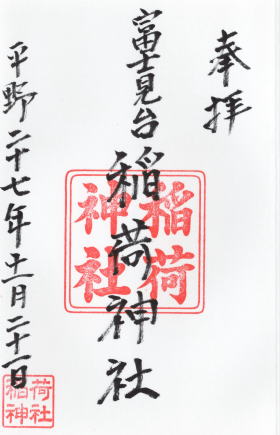 奉拝
富士見台
稲荷神社
平野二十七年十一月二十一日
稲荷
神社
稲荷
神社